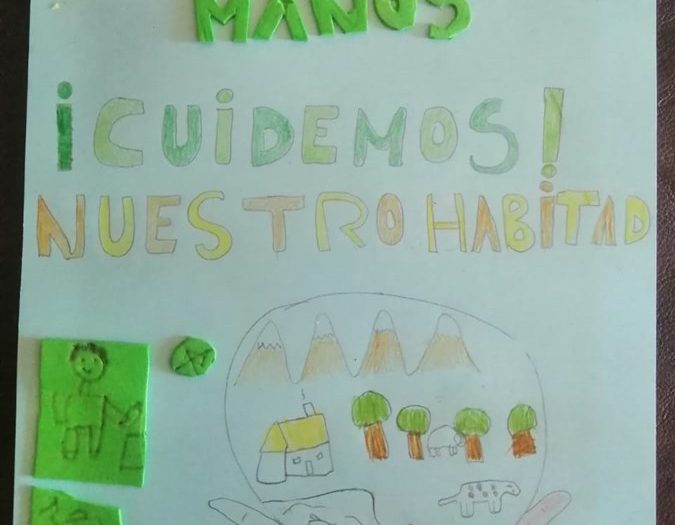 MANOS
¡CUIDEMOS!
NUESTRO HABiTAD